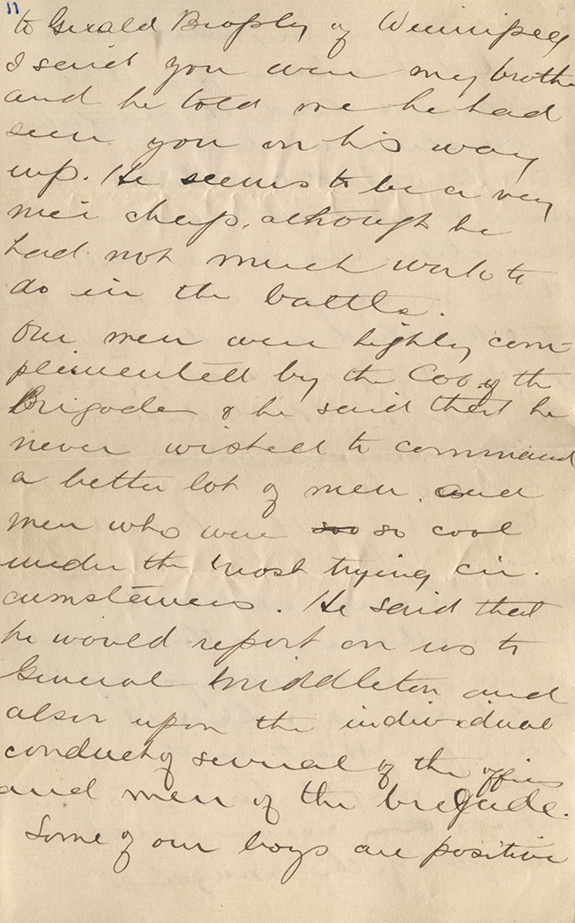 11
to Gerald Brophy of Winnipeg
I said you were my brothe
and he told me he had
seen you on his way
up. He seems to be a very
nice chap, although he
had not much work to
do in the battle.
Our men were highly com-
plimented by the Col of the
Brigade & he said that he
never wished to command
a better lot of men and
men who were so cool
under the most trying cir-
cumstances. He said that
he would report on us to
General Middleton and
also upon the individual
conduct of several of the officers
and men of the brigade.
Some of our boys are positive